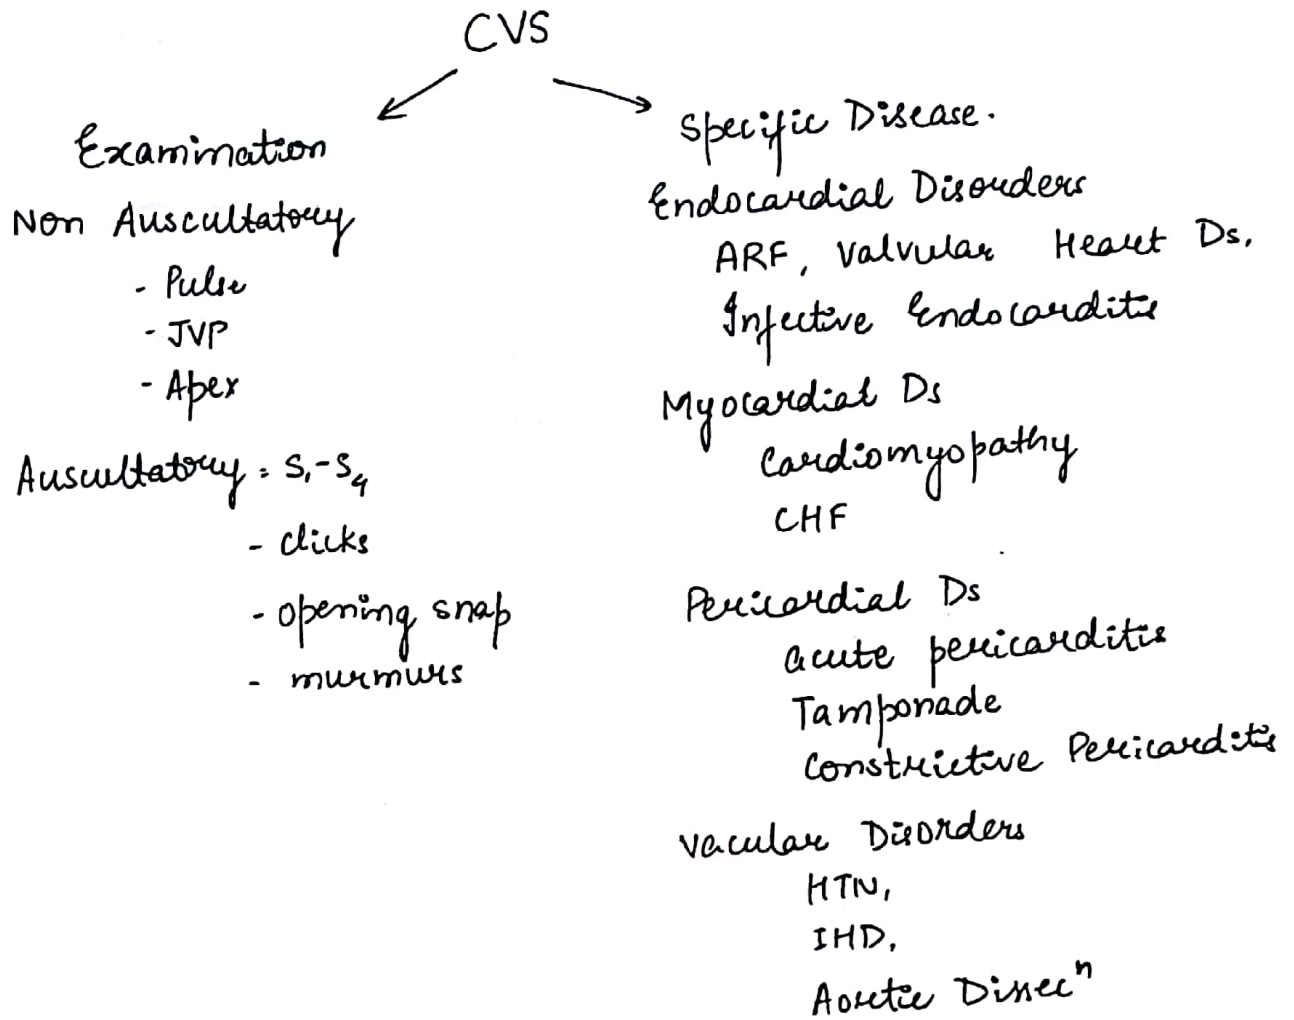 CVS
Examination
Non Auscultatory
- Pulse
- JVP
- Apex
Auscultatory = S₁-S₄
- clicks
- opening snap
- murmurs
Specific Disease.
Endocardial Disorders
ARF, Valvular Heart Ds.
Infective Endocarditis
Myocardial Ds
Cardiomyopathy
CHF
Pericardial Ds
acute pericarditis
Tamponade
Constrictive Pericarditis
Vacular Disorders
HTN,
IHD,
Aortic Dissecⁿ